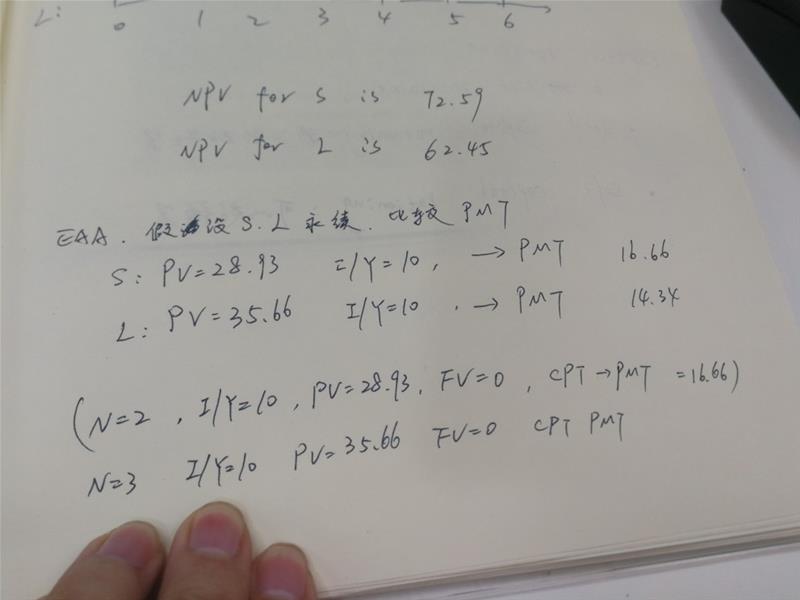 L:
0 1 2 3 4 5 6
NPV for S is 72.59
NPV for L is 62.45
EAA. 假设 S.L 永续. 比较 PMT
S: PV=28.93 I/Y=10, → PMT 16.66
L: PV=35.66 I/Y=10. → PMT 14.34
(N=2, I/Y=10, PV=28.93, FV=0, CPT→PMT =16.66)
N=3 I/Y=10 PV=35.66 FV=0 CPT PMT